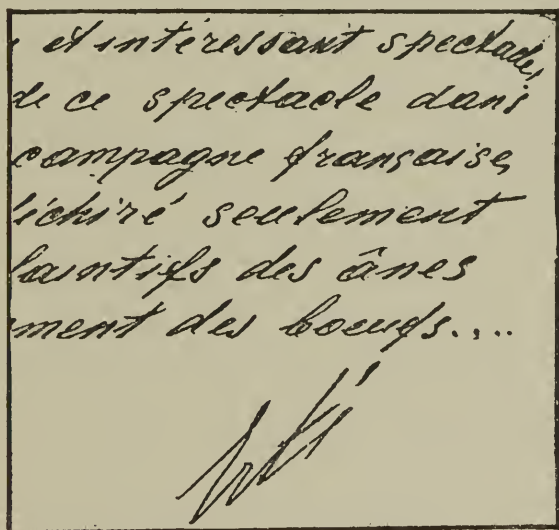 et intéressant spectacle,
de ce spectacle dans
campagne française,
déchiré seulement
plaintifs des ânes
ment des boeufs....